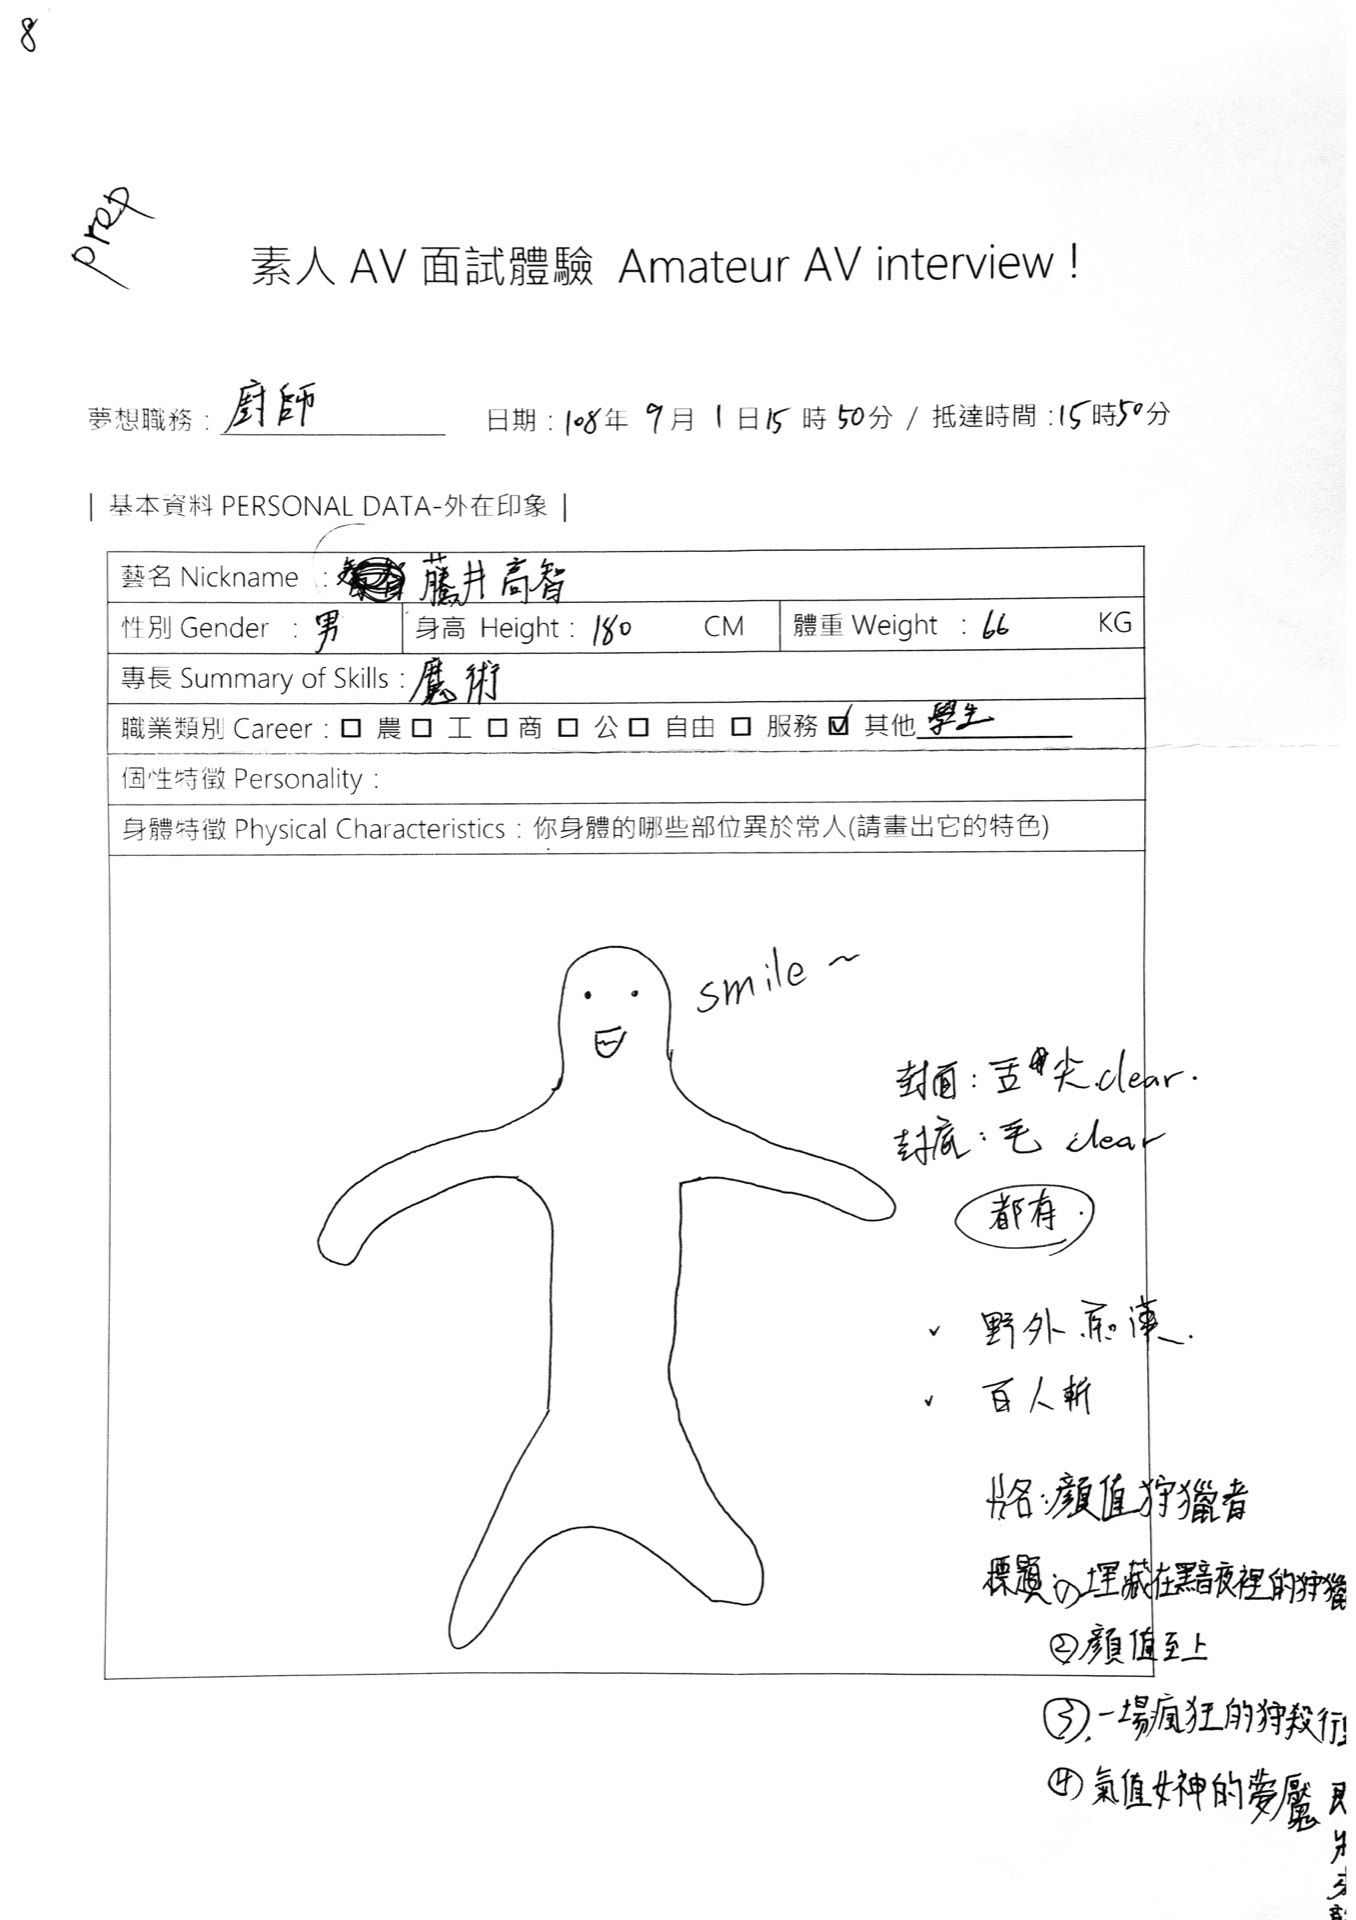 8
prep
素人 AV 面試體驗 Amateur AV interview !
夢想職務 : 廚師 日期 : 108年 9月 1日15時50分 / 抵達時間 : 15時50分
| 基本資料 PERSONAL DATA-外在印象 |
藝名 Nickname : 藤井高智
性別 Gender : 男 身高 Height : 180 CM 體重 Weight : 66 KG
專長 Summary of Skills : 魔術
職業類別 Career : □ 農 □ 工 □ 商 □ 公 □ 自由 □ 服務 ☑ 其他 學生
個性特徵 Personality :
身體特徵 Physical Characteristics : 你身體的哪些部位異於常人(請畫出它的特色)
smile ~
封面 : 舌尖 clear.
封底 : 毛 clear
都有.
✓ 野外
✓ 百人斬
片名 : 顏值狩獵者
標題 : ① 埋藏在黑暗夜裡的狩獵
② 顏值至上
③. 一場瘋狂的狩殺行
④ 氣值女神的夢魘